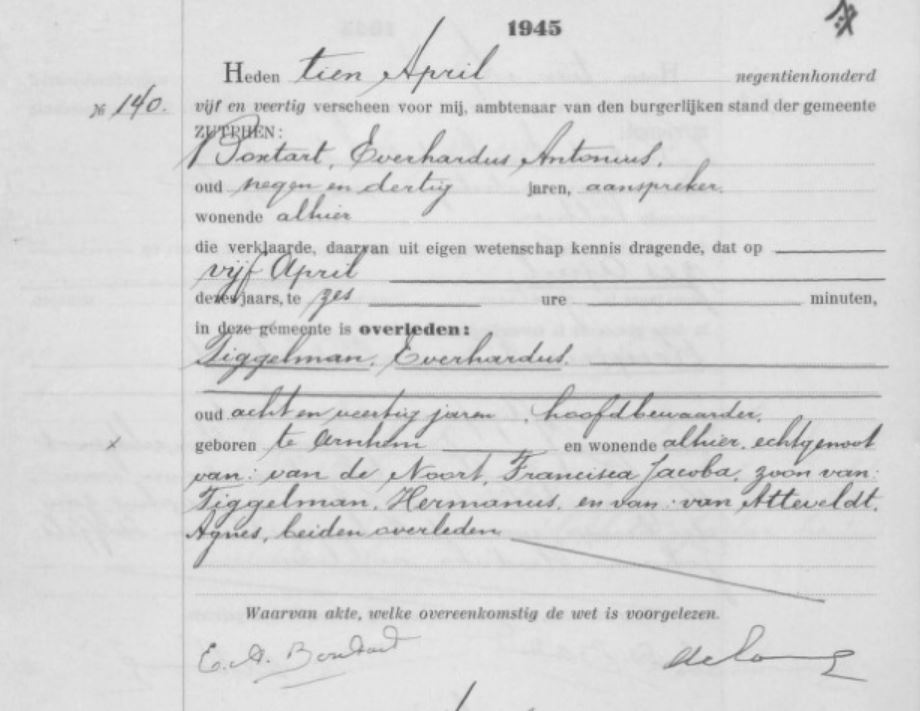 1945
Heden tien April negentienhonderd
№ 140. vijf en veertig verscheen voor mij, ambtenaar van den burgerlijken stand der gemeente
ZUTPHEN:
Boxtart, Everhardus Antonius.
oud negen en dertig jaren, aanspreker.
wonende alhier
die verklaarde, daarvan uit eigen wetenschap kennis dragende, dat op
vijf April
dezes jaars, te zes ure minuten,
in deze gemeente is overleden:
Tiggelman, Everhardus.
oud acht en veertig jaren, hoofdbewaarder,
geboren te Arnhem en wonende alhier, echtgenoot
van: van de Noort, Francisca Jacoba, zoon van:
Tiggelman, Hermanus, en van: van Atteveldt,
Agnes, beiden overleden
Waarvan akte, welke overeenkomstig de wet is voorgelezen.
E. A. Boxtart